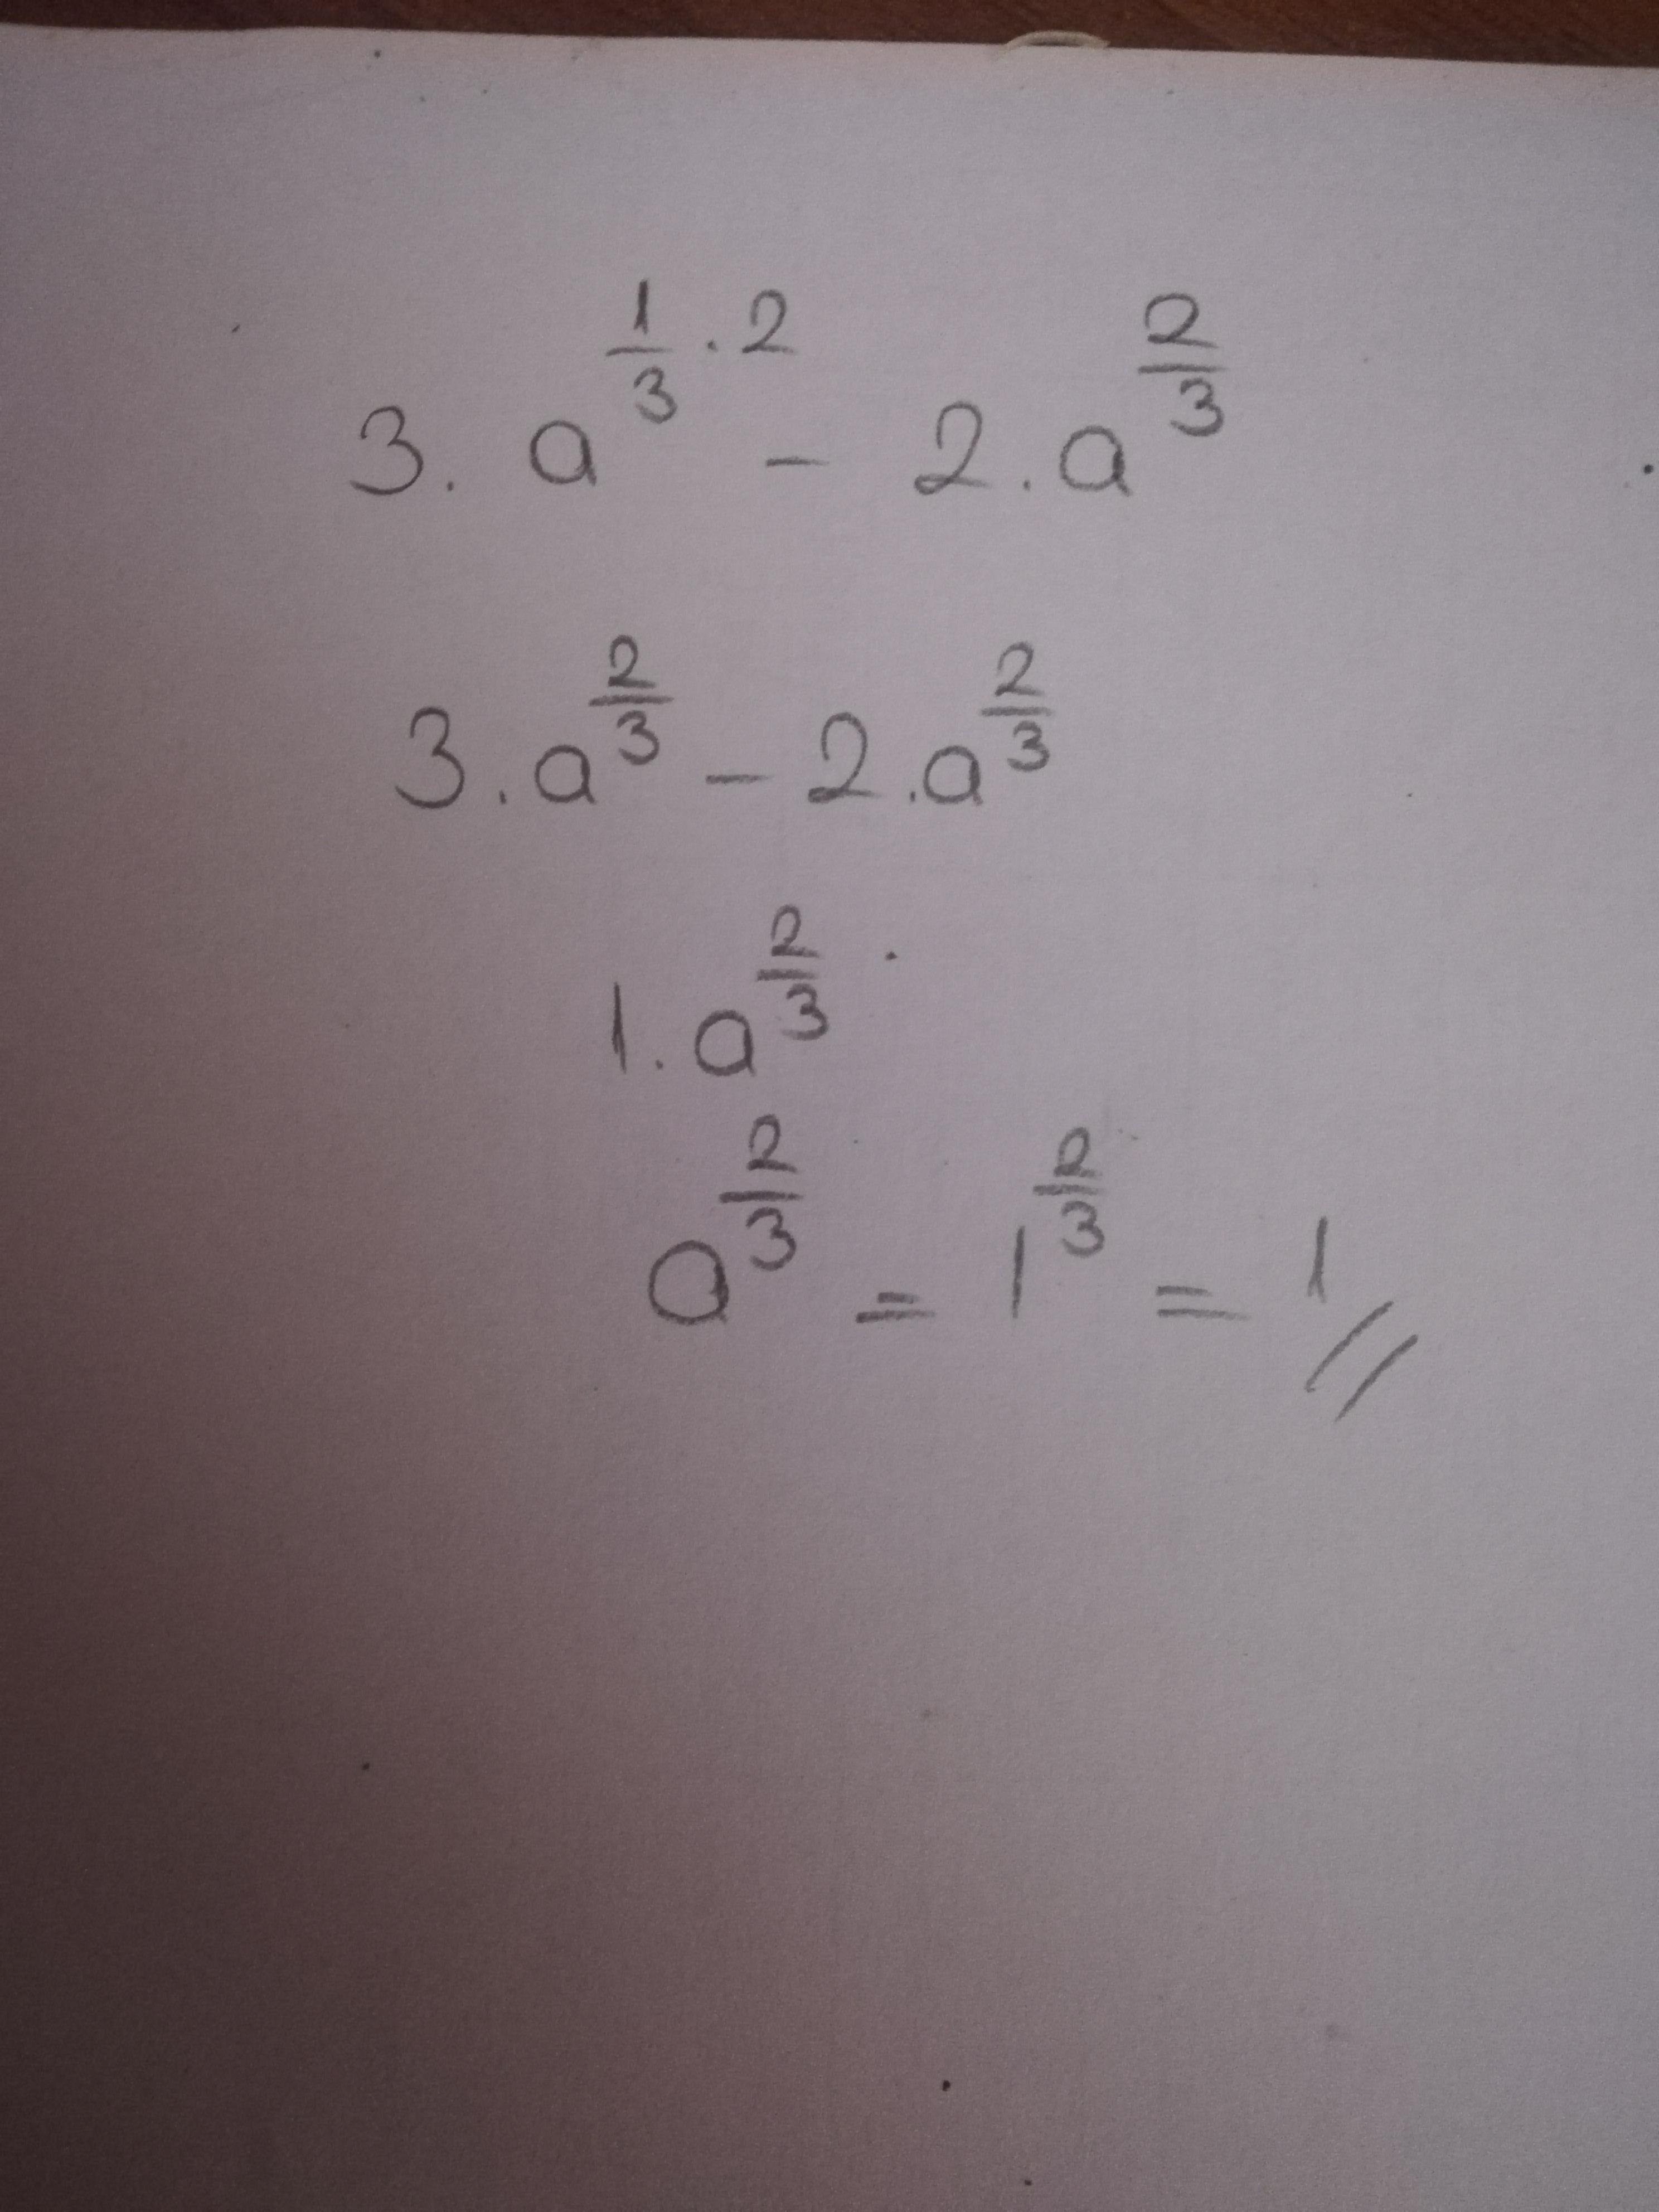 3. a^(1/3 . 2) - 2. a^(2/3)
3. a^(2/3) - 2. a^(2/3)
1. a^(2/3)
a^(2/3) = 1^(2/3) = 1 //